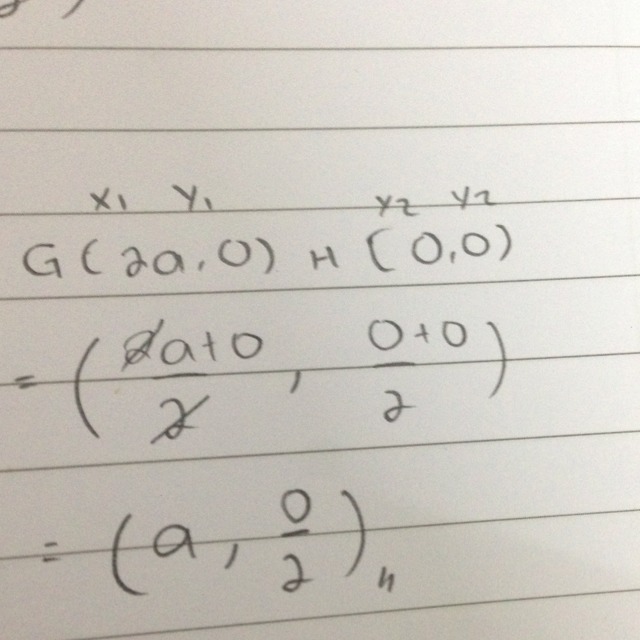 x₁ y₁ x₂ y₂
G(2a,0) H(0,0)
= (2a+0/2, 0+0/2)
= (a, 0/2)〃